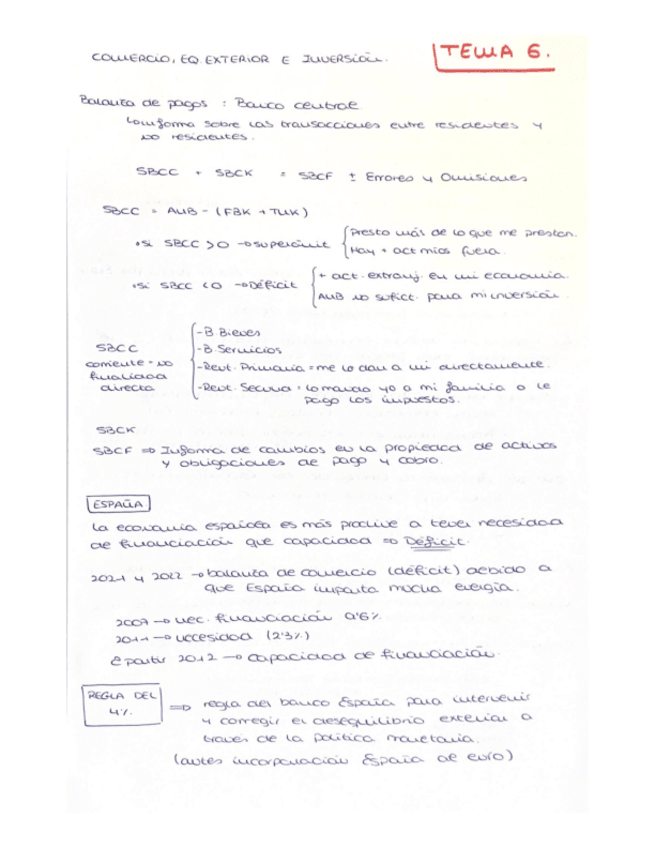 COMERCIO, EQ. EXTERIOR E INVERSIÓN.
TEMA 6.
Balanza de pagos : Banco central
informa sobre las transacciones entre residentes y
no residentes.
SBCC + SBCK = SBCF ± Errores y Omisiones
SBCC = ANB - (FBK + TNK)
• si SBCC > 0 → superávit
Presto más de lo que me prestan.
Hay + act mios fuera.
• si SBCC < 0 → Déficit
+ act. extranj. en mi economía.
ANB no sufict. para mi inversión.
SBCC
corriente = no
finalidad
directa
- B Bienes
- B. Servicios
- Rent. Primaria = me lo dan a mi directamente.
- Rent. Secund = lo mando yo a mi familia o le
pago los impuestos.
SBCK
SBCF ⇒ Informa de cambios en la propiedad de activos
y obligaciones de pago y cobro.
ESPAÑA
la economía española es más proclive a tener necesidad
de financiación que capacidad ⇒ Déficit.
2021 y 2022 → balanza de comercio (déficit) debido a
que España importa mucha energía.
2007 → nec. financiación 9'6%
2011 → necesidad (2'3%)
A partir 2012 → capacidad de financiación.
REGLA DEL
4%.
⇒ regla del banco España para intervenir
y corregir el desequilibrio exterior a
través de la política monetaria.
(antes incorporación España al euro)